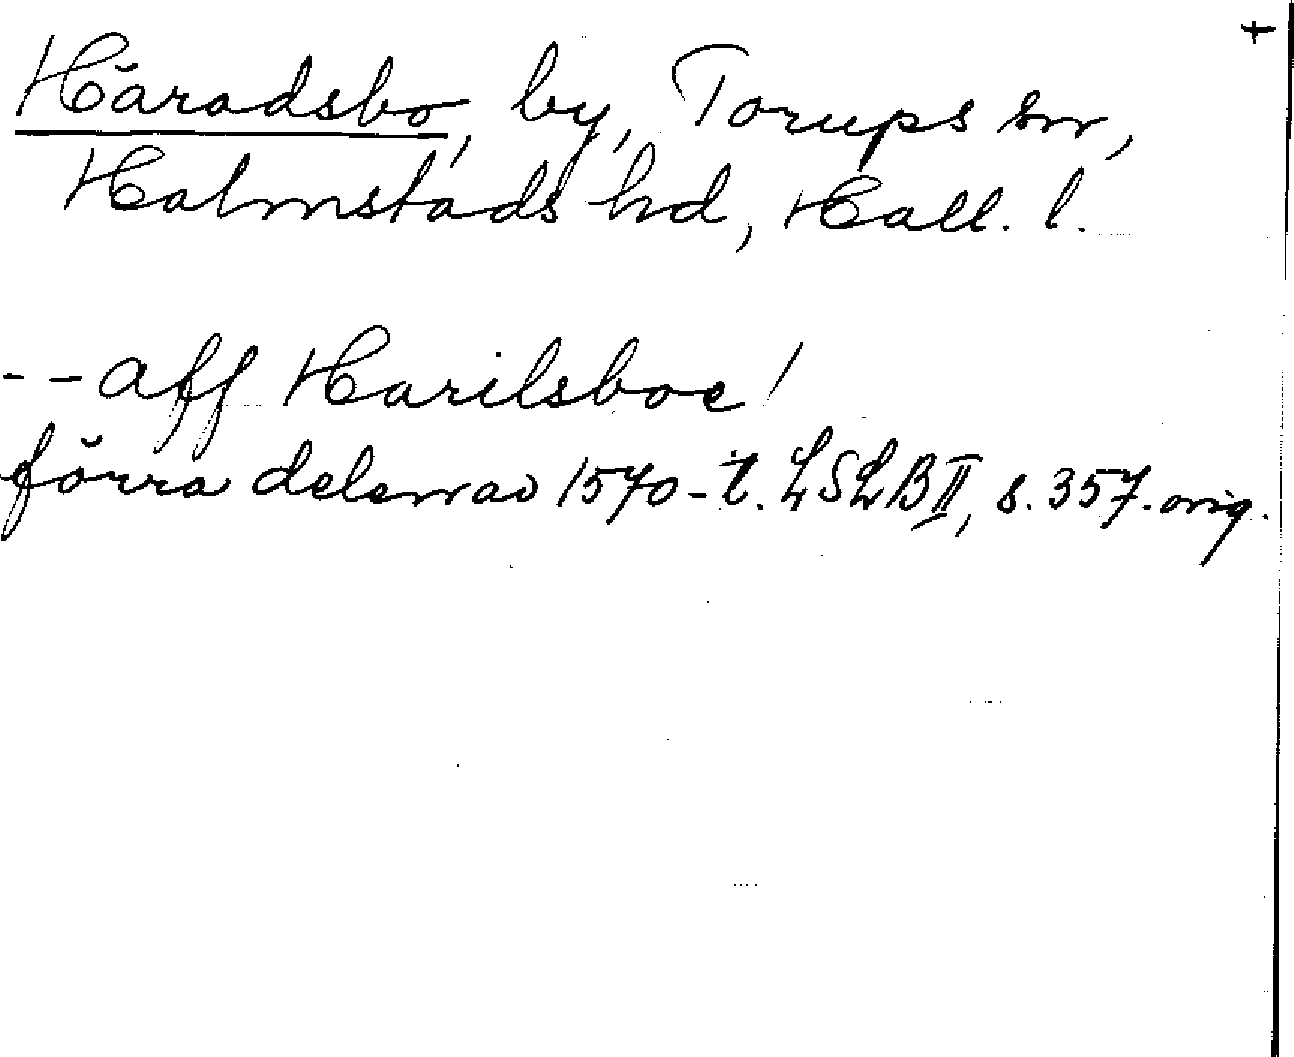 Häradsbo, by, Torups sn,
Halmstads hd, Hall. l.
-- aff Harilsboe /
förra delen av 1570-t. LSLB II, s. 357. orig.